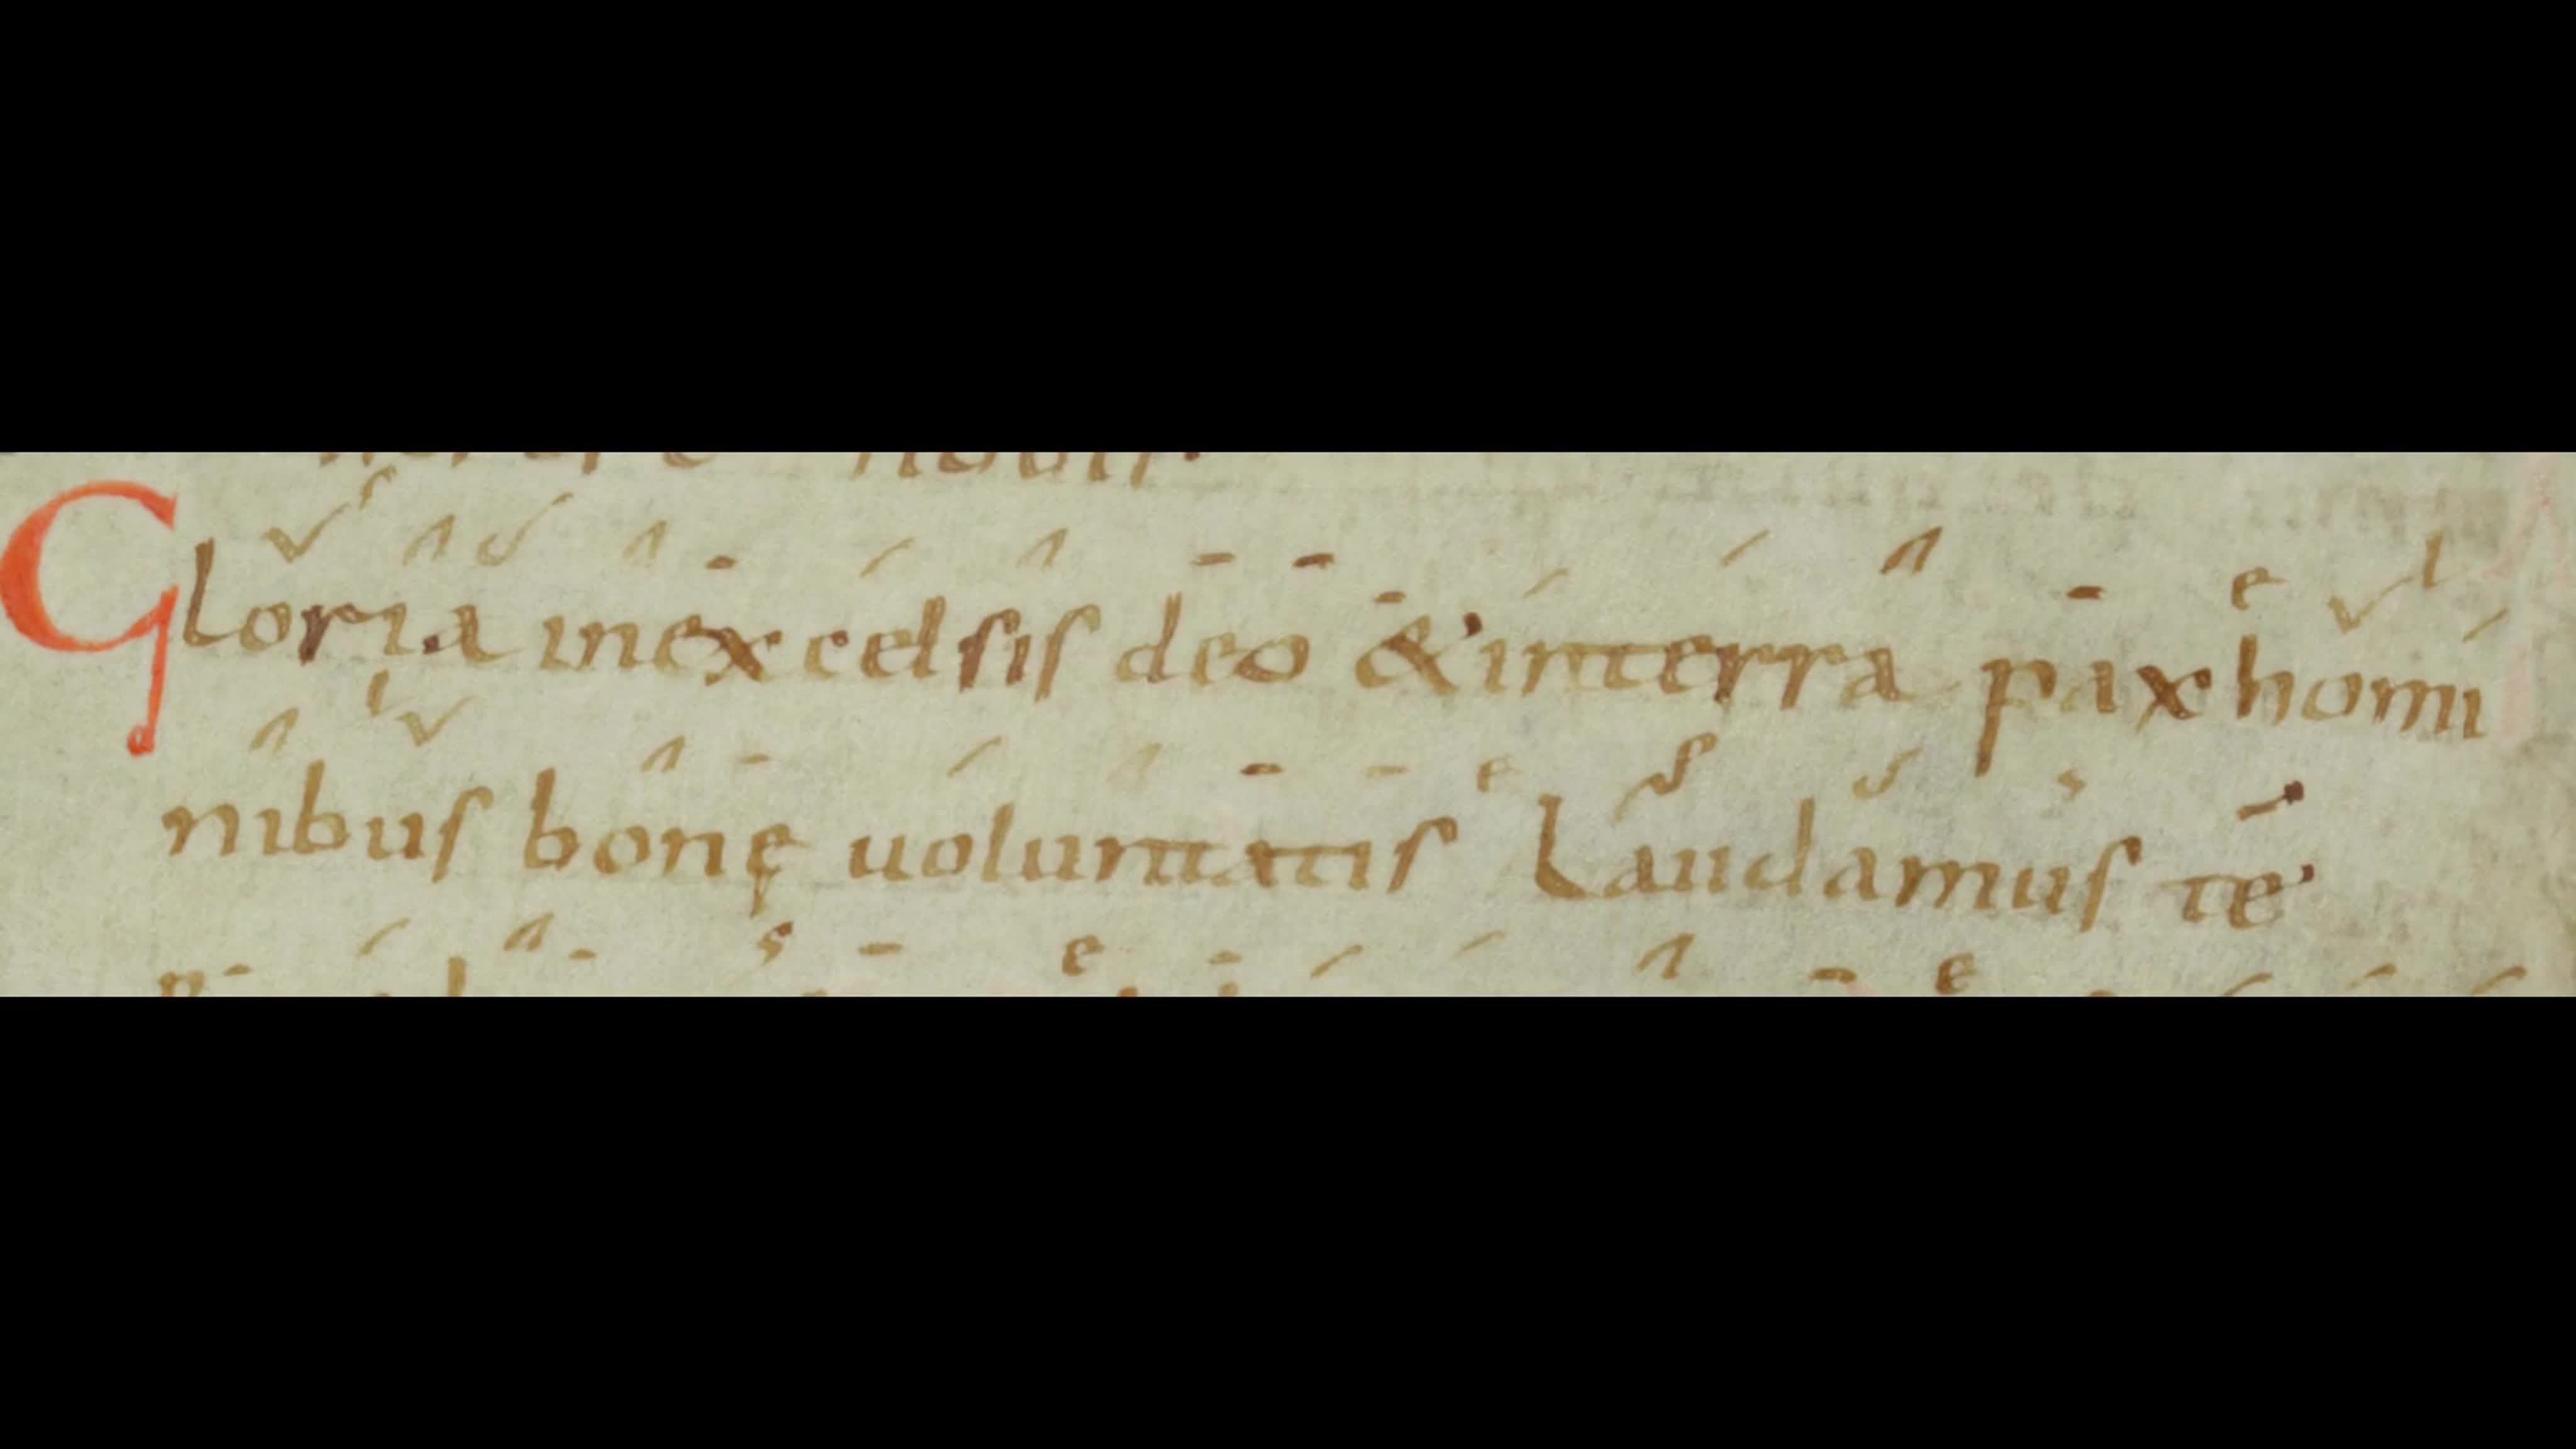 Gloria inexcelsis deo & interra pax homi
nibus bonę uoluntatis Laudamus te